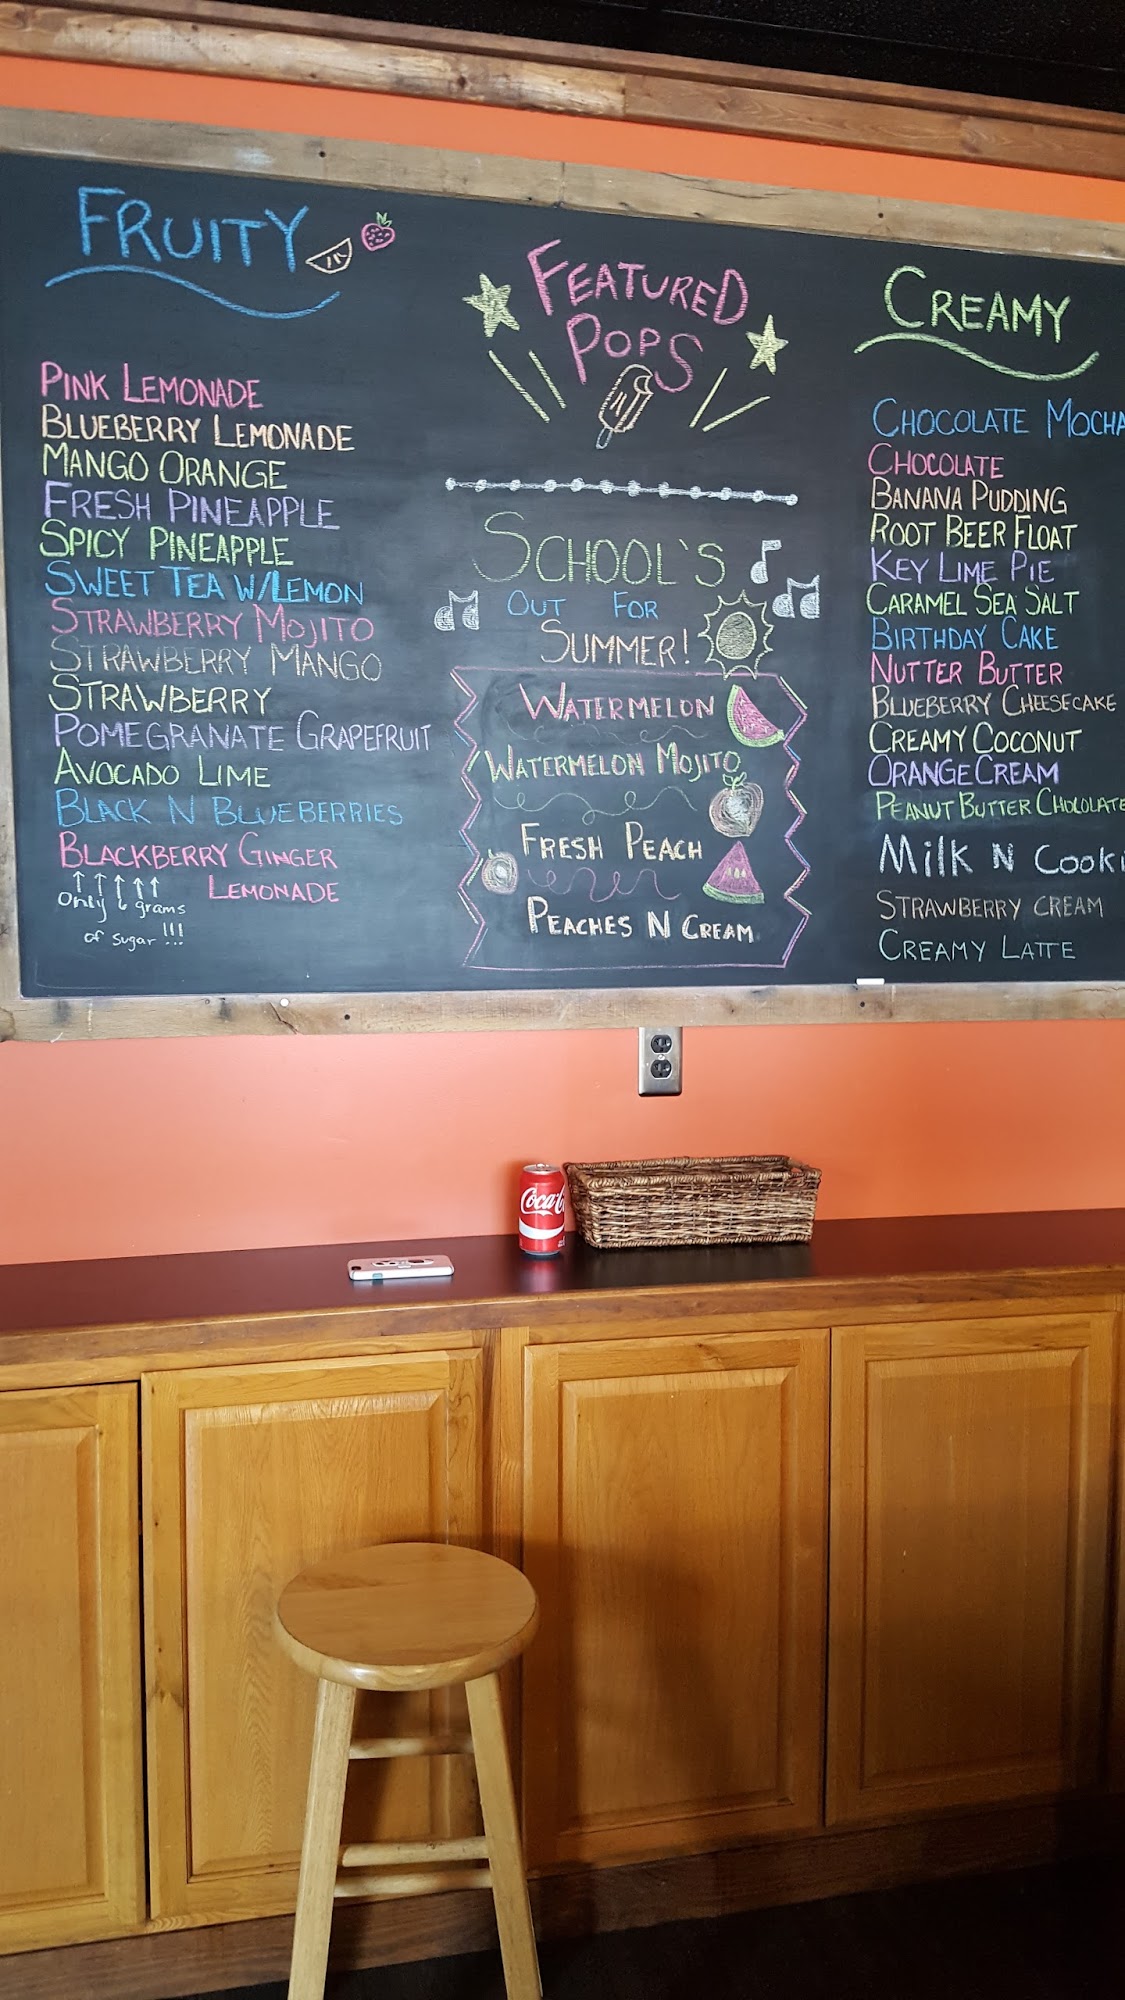 FRUITY
PINK LEMONADE
BLUEBERRY LEMONADE
MANGO ORANGE
FRESH PINEAPPLE
SPICY PINEAPPLE
SWEET TEA W/LEMON
STRAWBERRY MOJITO
STRAWBERRY MANGO
STRAWBERRY
POMEGRANATE GRAPEFRUIT
AVOCADO LIME
BLACK N BLUEBERRIES
BLACKBERRY GINGER
LEMONADE
Only 6 grams
of sugar !!!
FEATURED
POPS
SCHOOL'S
OUT FOR
SUMMER!
WATERMELON
WATERMELON MOJITO
FRESH PEACH
PEACHES N CREAM
CREAMY
CHOCOLATE MOCHA
CHOCOLATE
BANANA PUDDING
ROOT BEER FLOAT
KEY LIME PIE
CARAMEL SEA SALT
BIRTHDAY CAKE
NUTTER BUTTER
BLUEBERRY CHEESECAKE
CREAMY COCONUT
ORANGE CREAM
PEANUT BUTTER CHOLOLATE
Milk N Cooki
STRAWBERRY CREAM
CREAMY LATTE
Coca-C